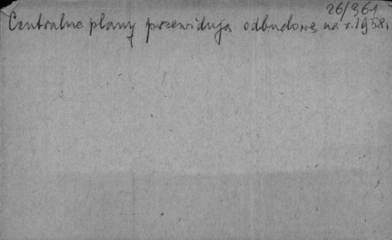 26/361
Centralne plany przewidują odbudowę na r. 1958.